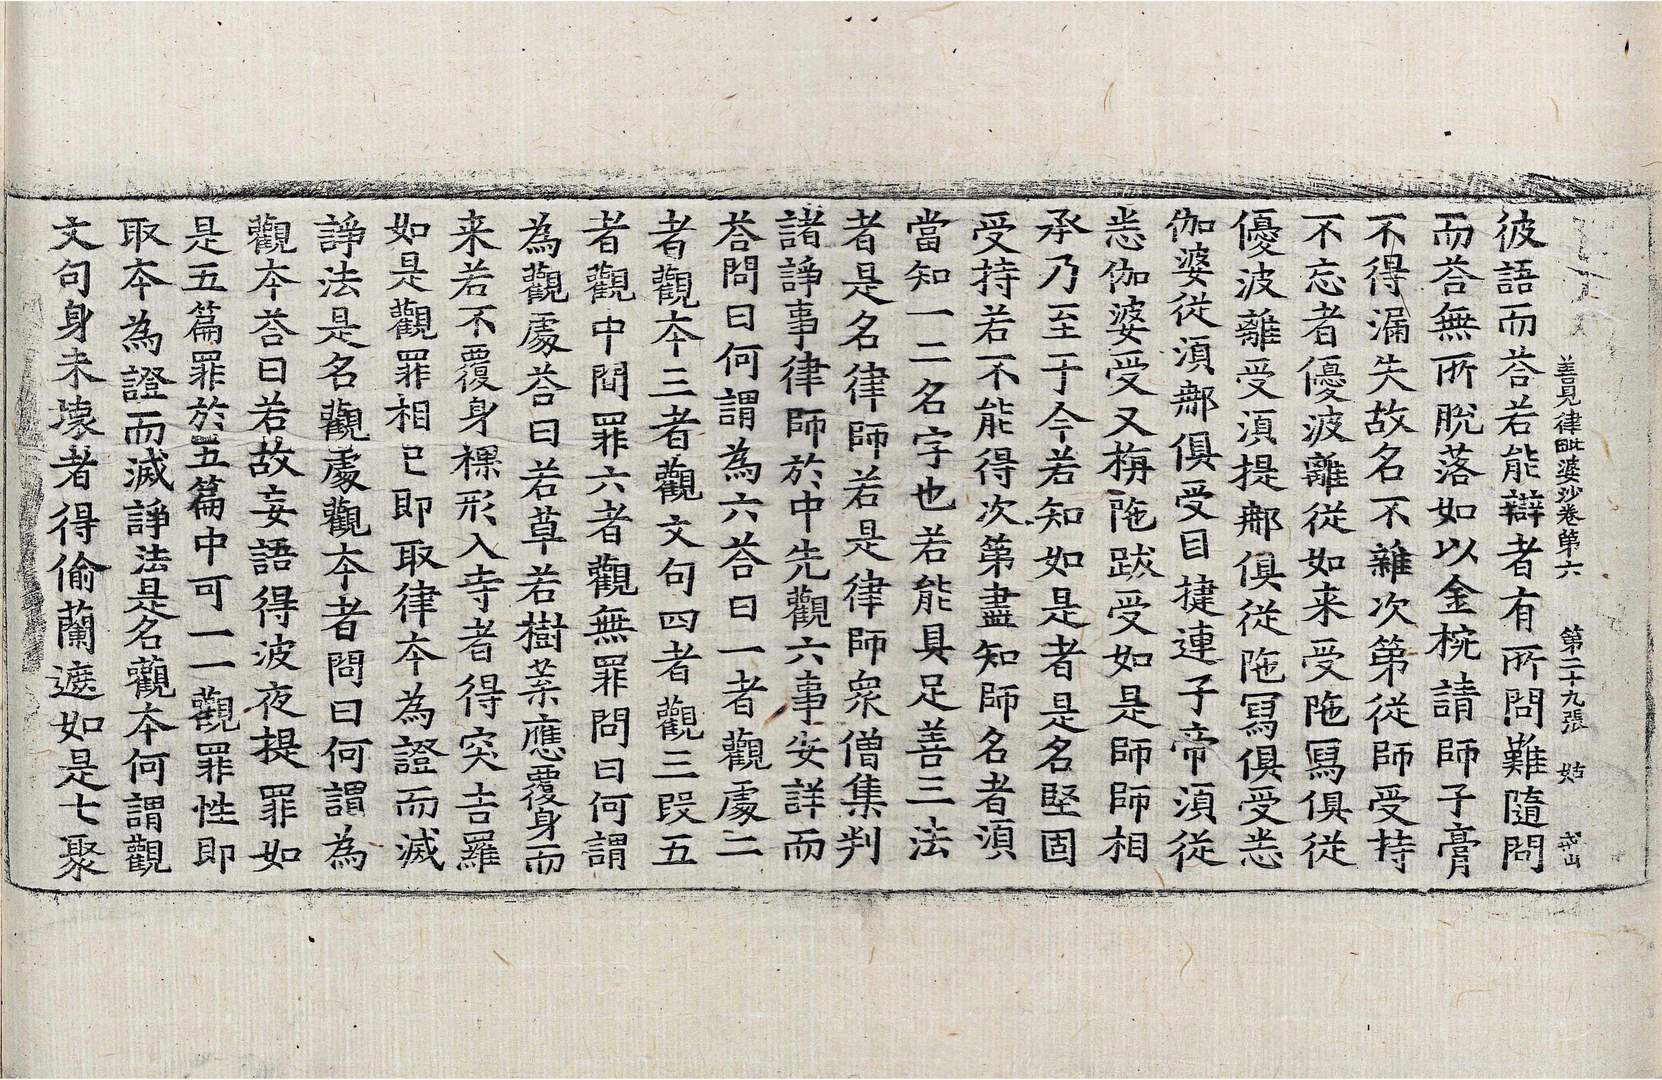 善見律毗婆沙卷第六 第二十九張 姑 戒山
彼語而荅若能辯者有所問難隨問
而荅無所脫落如以金椀請師子膏
不得漏失故名不雜次第從師受持
不忘者優波離從如来受陁寫俱從
優波離受湏提郍俱從陁寫俱受悉
伽婆從湏郍俱受目揵連子帝湏從
悉伽婆受又栴陁跋受如是師師相
承乃至于今若知如是者是名堅固
受持若不能得次第盡知師名者湏
當知一二名字也若能具足善三法
者是名律師若是律師衆僧集判
諸諍事律師於中先觀六事安詳而
荅問曰何謂為六荅曰一者觀處二
者觀本三者觀文句四者觀三段五
者觀中間罪六者觀無罪問曰何謂
為觀處荅曰若草若樹葉應覆身而
来若不覆身裸形入寺者得突吉羅
如是觀罪相已即取律本為證而滅
諍法是名觀處觀本者問曰何謂為
觀本荅曰若故妄語得波夜提罪如
是五篇罪於五篇中可一一觀罪性即
取本為證而滅諍法是名觀本何謂觀
文句身未壞者得偷蘭遮如是七聚